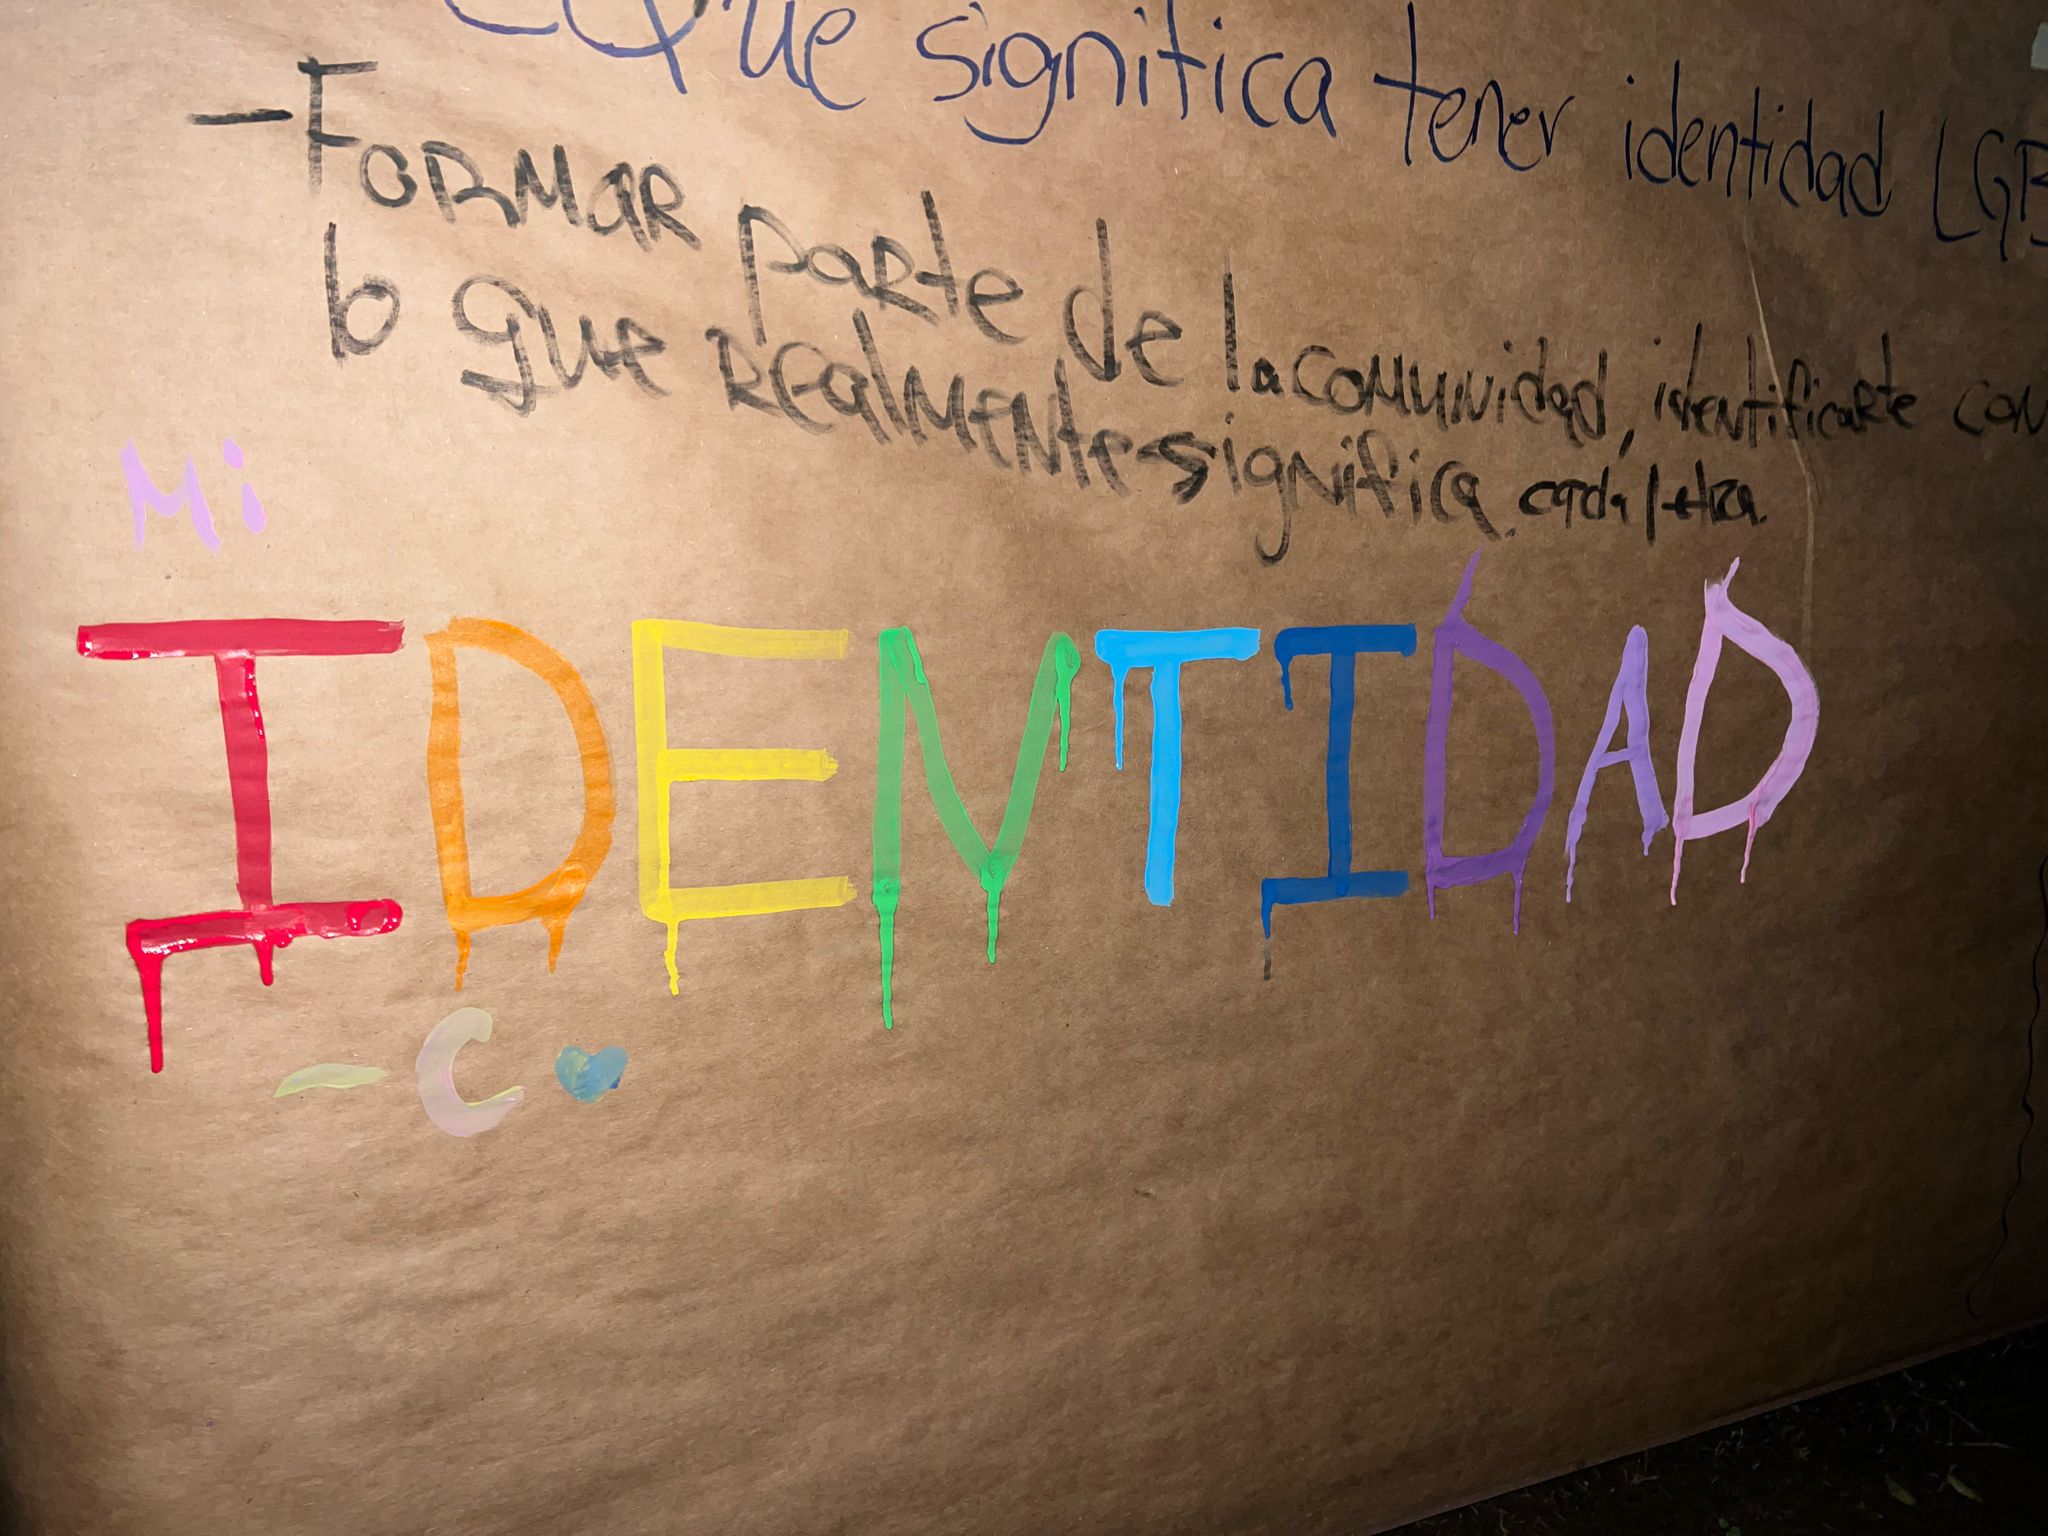 ¿Que significa tener identidad LGB
- Formar parte de la comunidad, identificarte con
lo que realmente significa cada letra.
Mi
IDENTIDAD
- C ♥